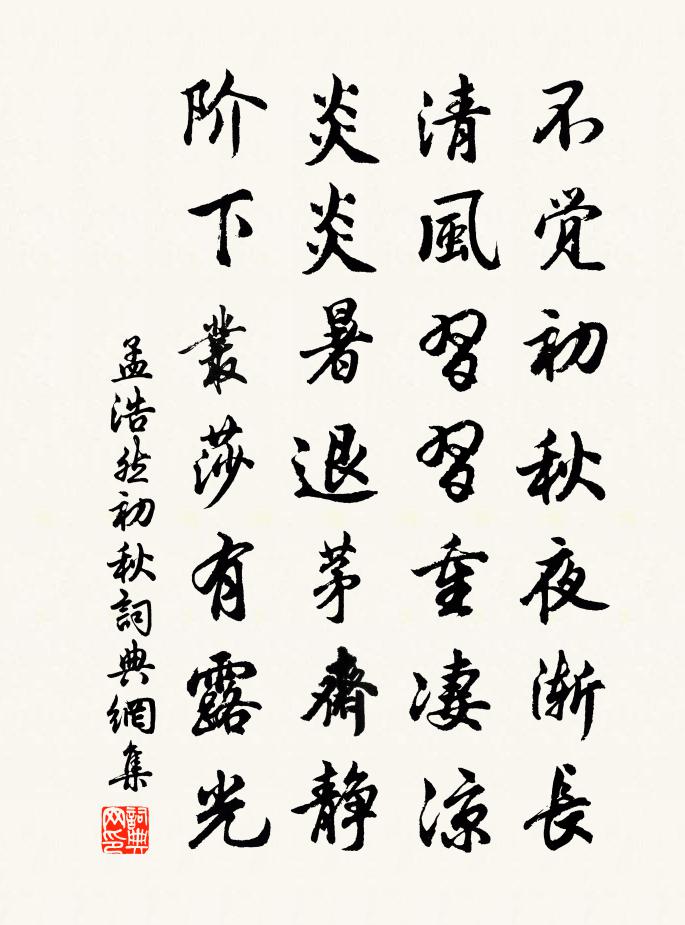 不觉初秋夜渐長
清風習習重凄凉
炎炎暑退茅齋静
阶下叢莎有露光
孟浩然初秋詞典網集
詞典网印